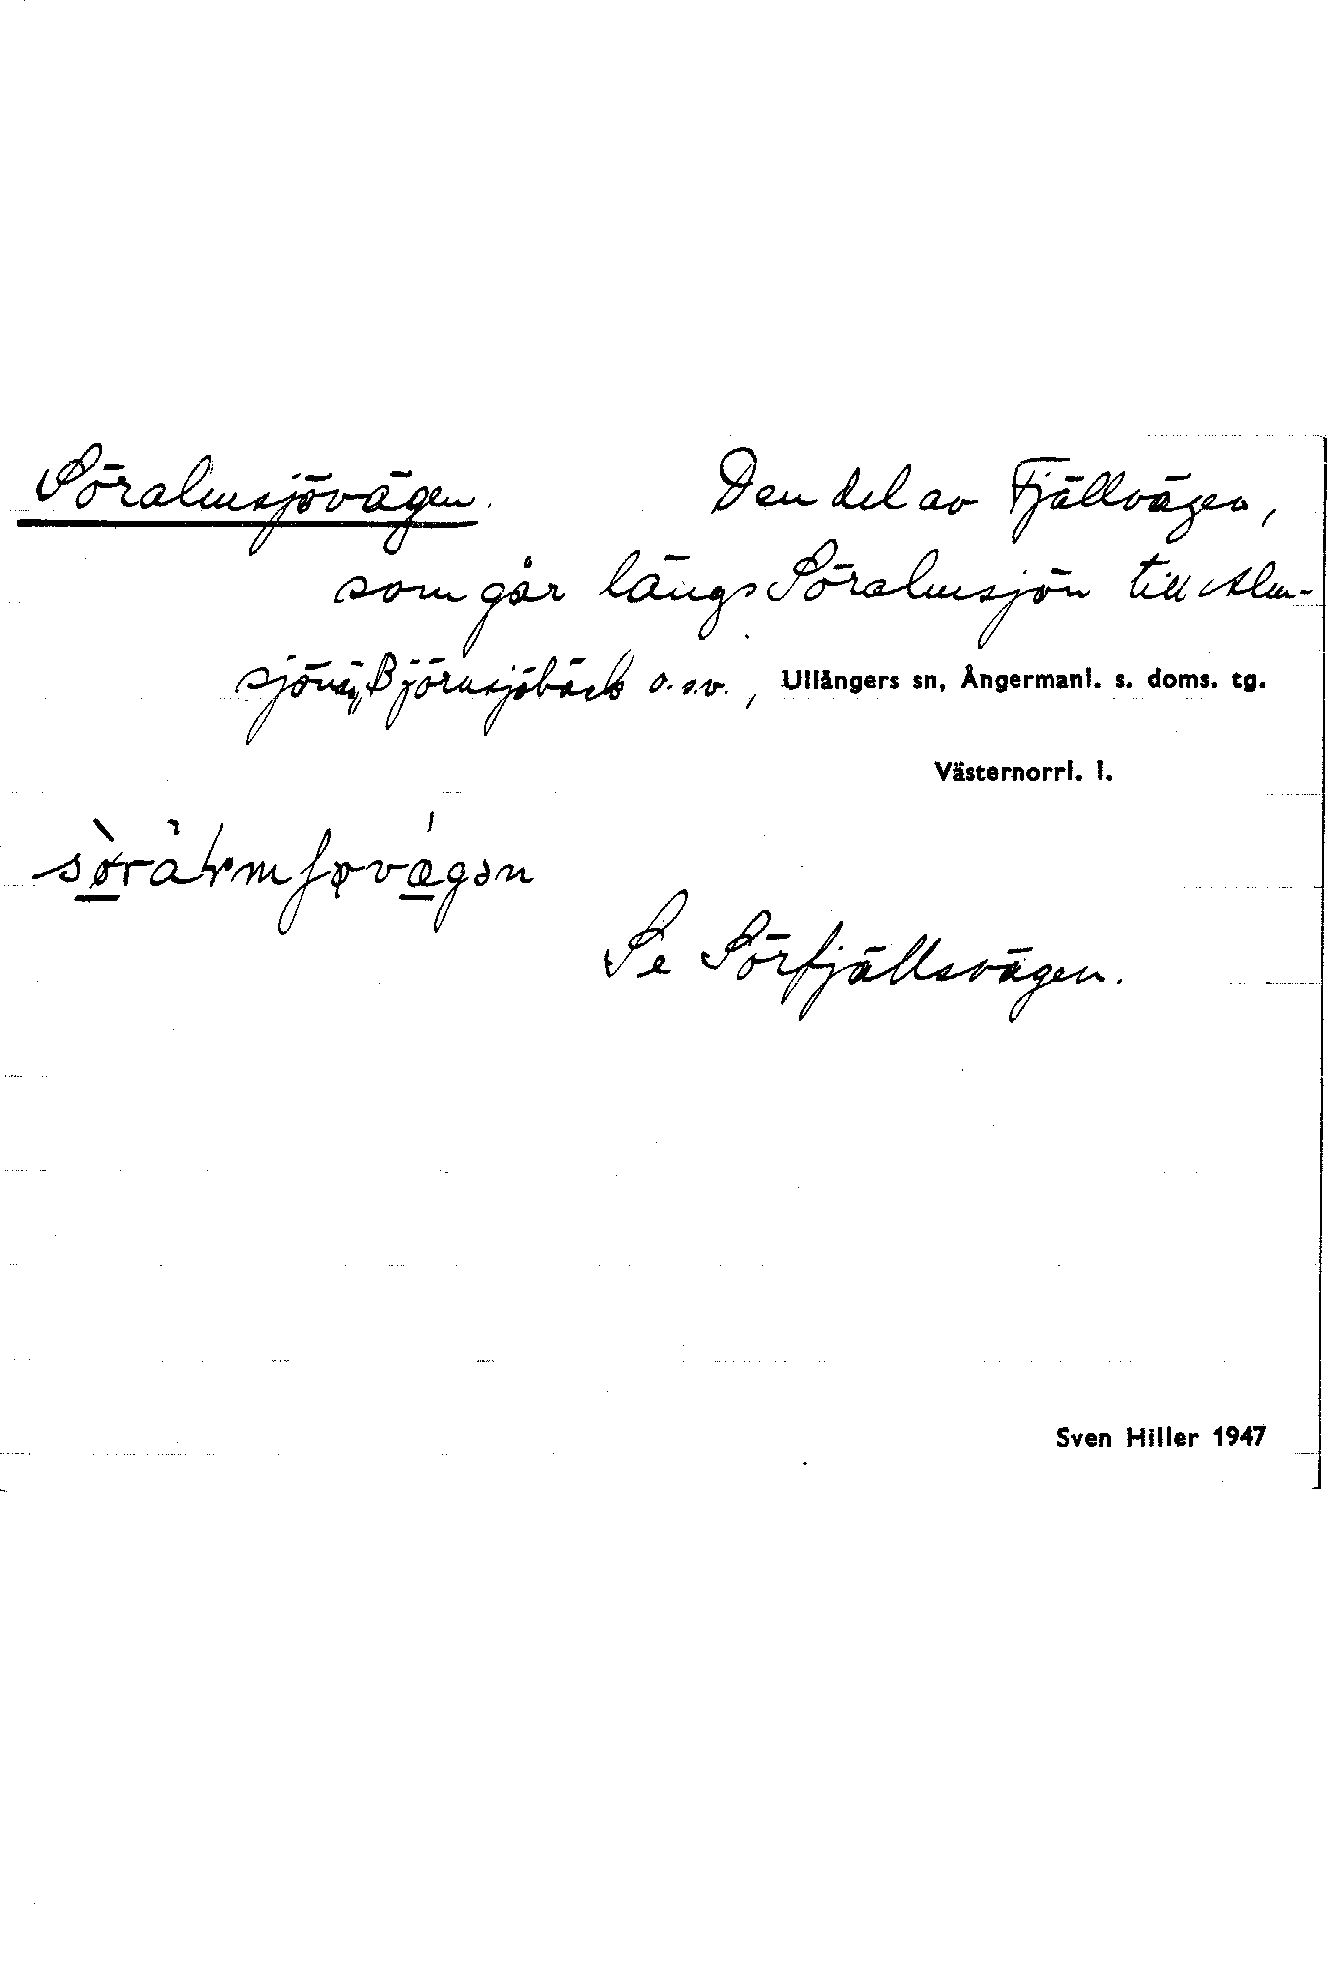 Söralmsjövägen. Den del av Fjällvägen,
som går längs Söralmsjön till Alm-
sjönäs, Björnsjöbäck o.s.v., Ullångers sn, Ångermanl. s. doms. tg.
Västernorrl. l.
Se Sörfjällsvägen.
Sven Hiller 1947